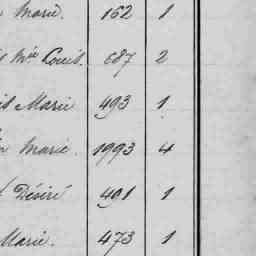 Marie. 162 1
Mie Louis. 687 2
Marie 493 1
Marie. 1993 4
Désiré 491 1
Marie. 473 1